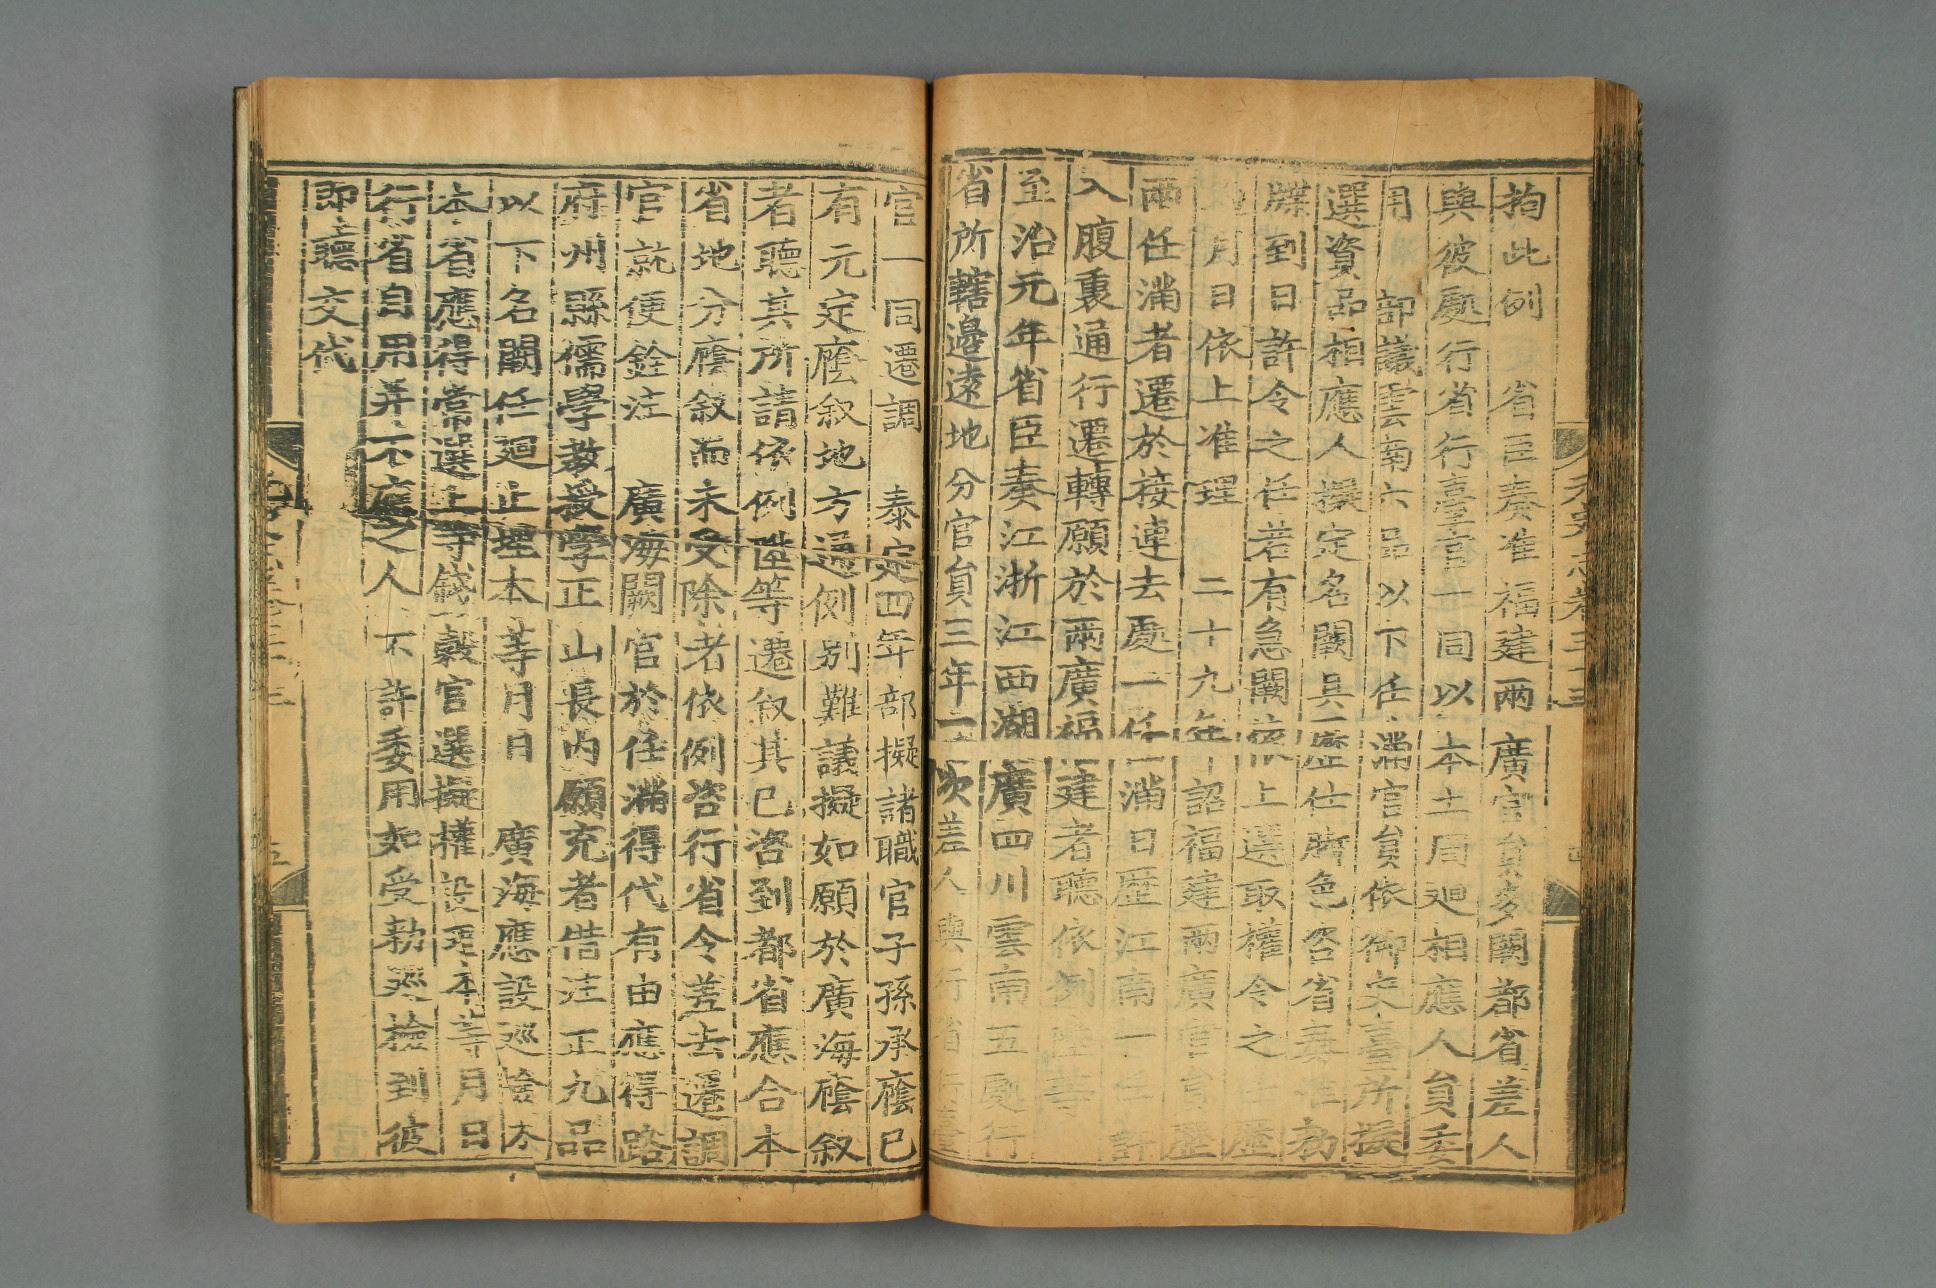 拘此例 省臣奏准福建兩廣官員多闕都省差人
與彼處行省行臺官一同以本土周廻相應人員委
用 部議雲南六品以下任滿官員依御史臺所擬
選資品相應人擬定名闕具歷仕脚色咨省奏准勑
牒到日許令之任若有急闕依上選取權令之任歷
過月日依上准理 二十九年詔福建兩廣官員歷
兩任滿者遷於接連去處一任滿日歷江南一 許
入腹裏通行遷轉願於兩廣福建者聽依例陞等
至治元年省臣奏江浙江西湖廣四川雲南五處行
省所轄邊遠地分官員三年一次差人與行省行臺
官一同遷調 泰定四年部擬諸職官子孫承廕已
有元定廕叙地方通例别難議擬如願於廣海廕叙
者聽其所請依例陞等遷叙其已咨到都省應合本
省地分廕叙而未受除者依例咨行省令差去遷調
官就便銓注 廣海闕官於任滿得代有由應得路
府州縣儒學教授學正山長内願充者借注正九品
以下名闕任廻止理本等月日 廣海應設巡檢本
本省應得常選上等錢穀官選擬權設理本等月日
行省自用并不應之人不許委用如受勑廵檢到彼
即聽交代
元史志卷三十三
五